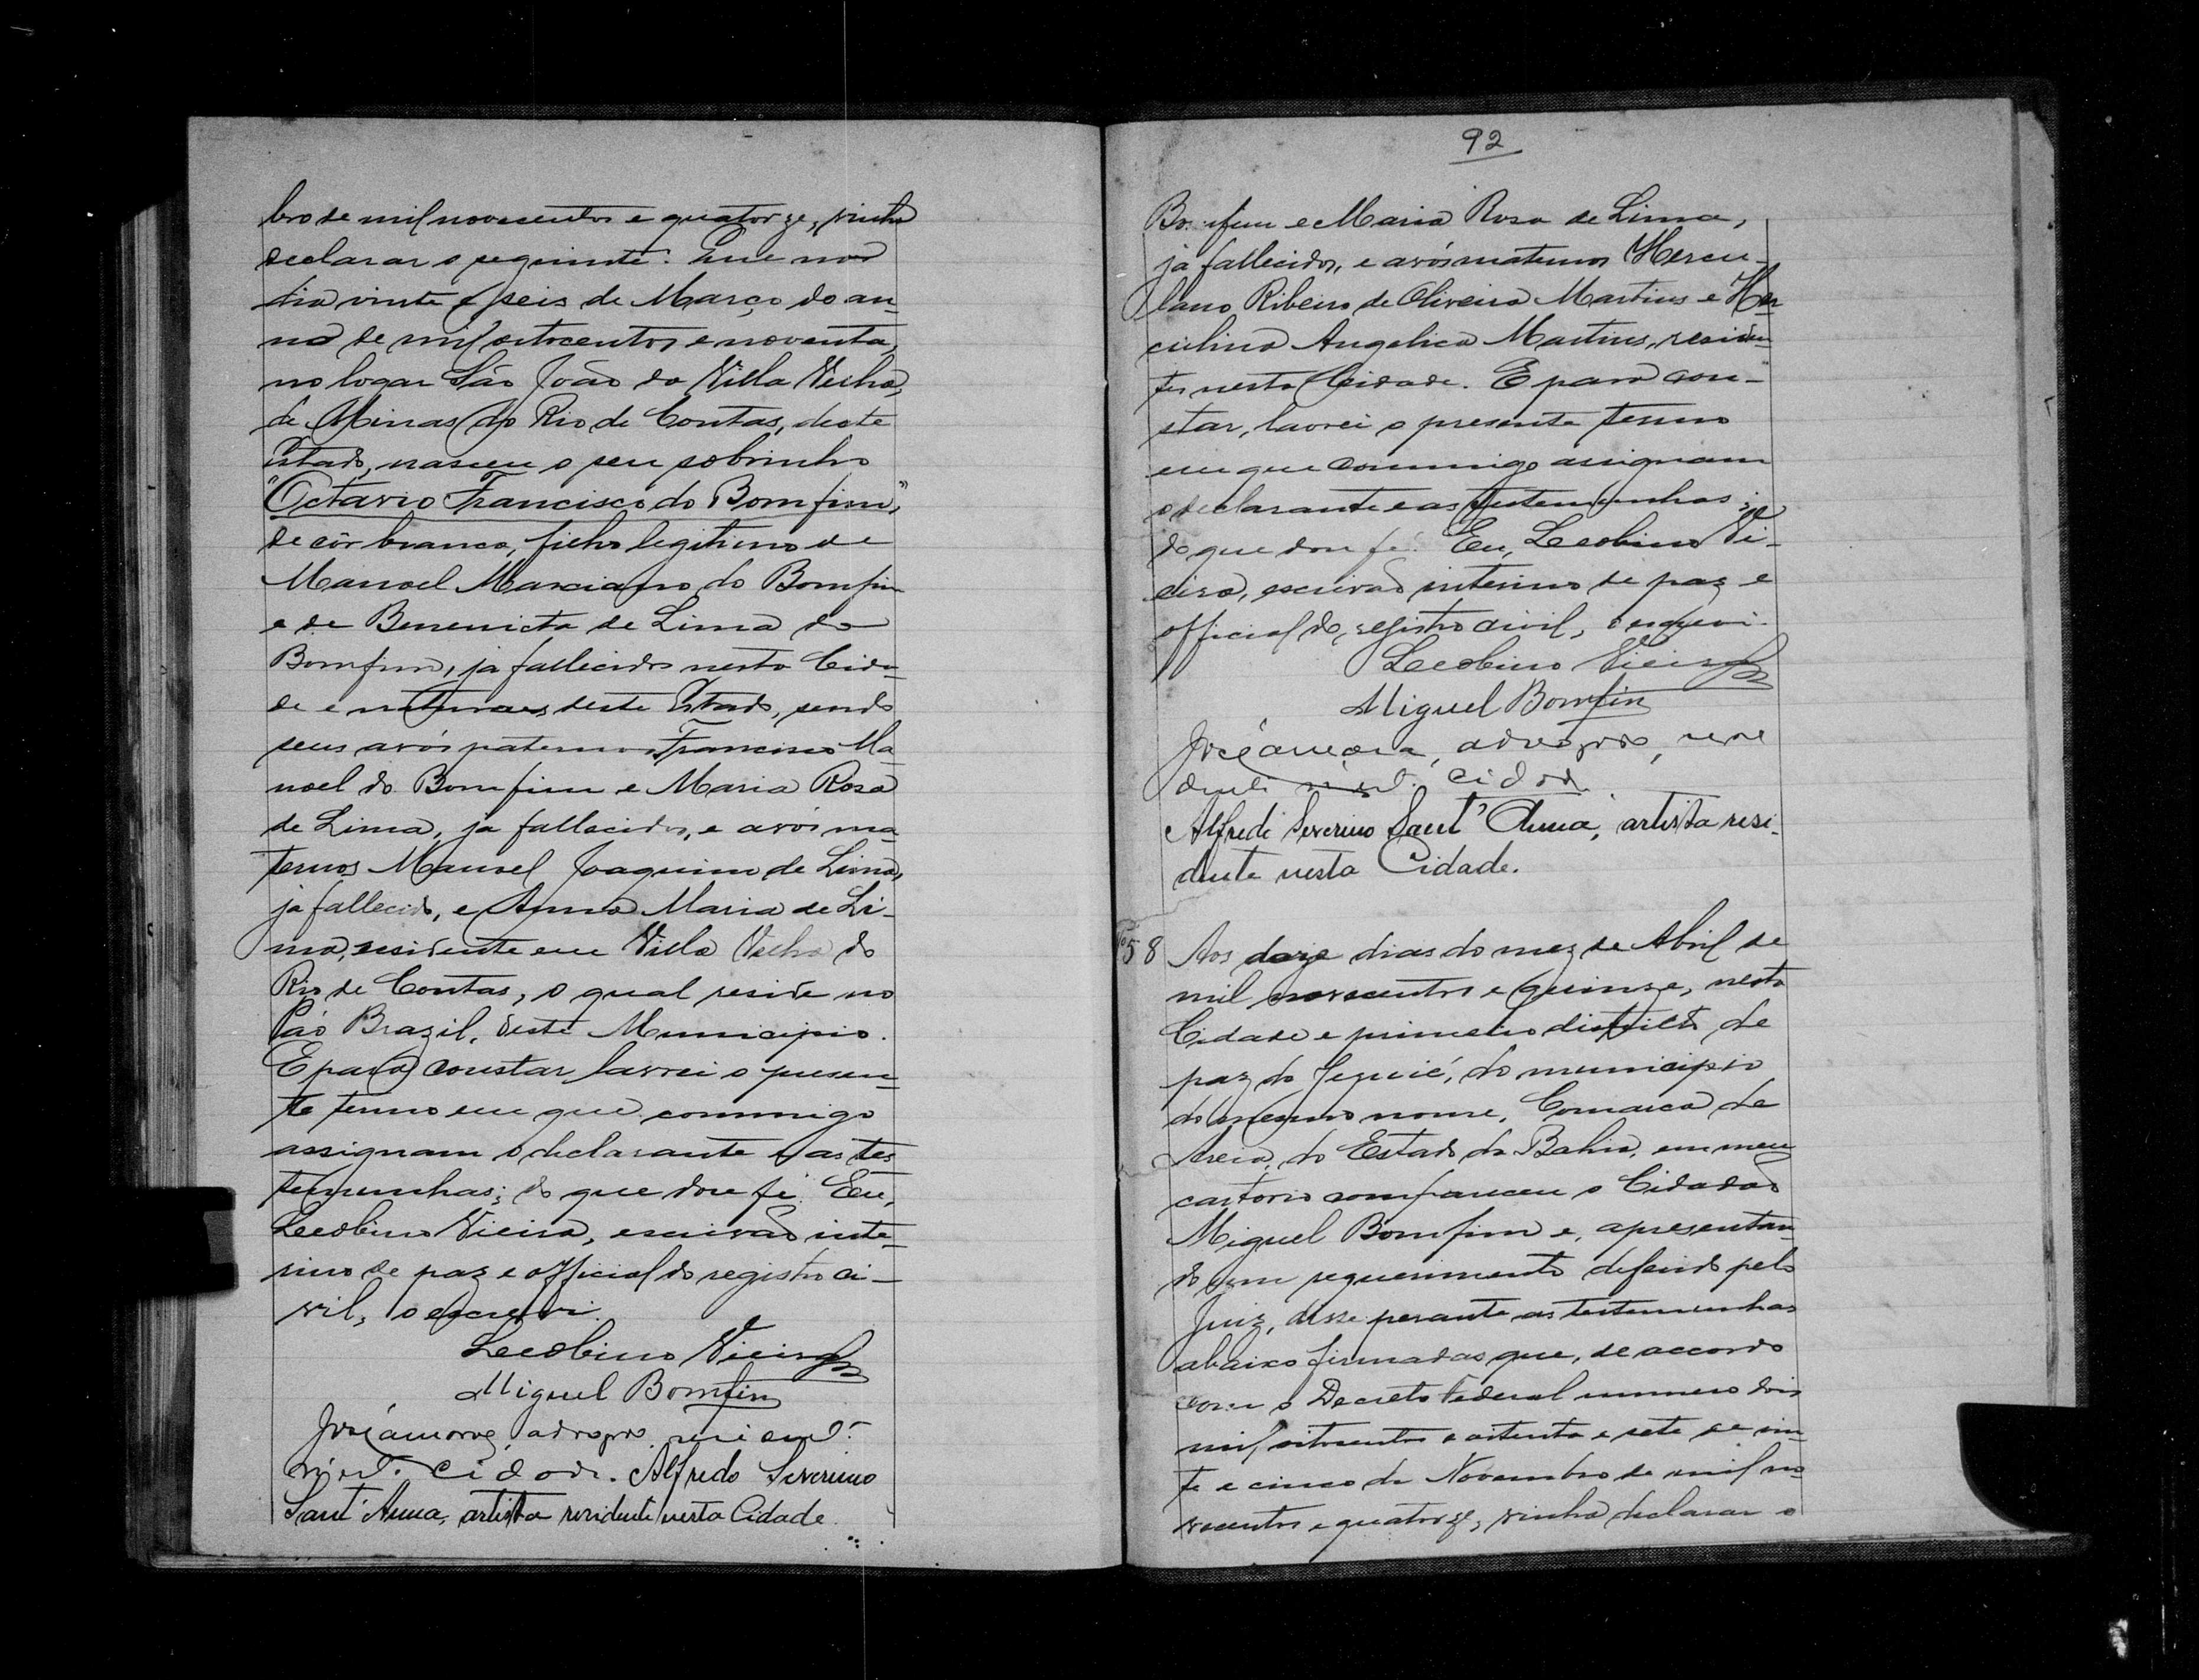 bro de mil novecentos e quatorze, vinha
declarar o seguinte: Que no
dia vinte e seis de Março do an-
no de mil oitocentos e noventa,
no logar São João da Villa Velha,
de Minas do Rio de Contas, deste
Estado, nasceu o seu sobrinho
"Octavio Francisco do Bomfim",
de côr branca, filho legitimo de
Manoel Marciano do Bomfim
e de Benevicta de Lima do
Bomfim, ja fallecidos nesta Cida-
de e naturaes deste Estado, sendo
seus avós paternos Francisco Ma-
noel do Bomfim e Maria Rosa
de Lima, ja fallecidos, e avós ma-
ternos Manoel Joaquim de Lima,
ja fallecido, e Anna Maria de Li-
ma, residente em Villa Velha do
Rio de Contas, o qual reside no
Páo Brazil, deste Municipio.
E para constar lavrei o presen-
te termo em que commigo
assignam o declarante e as tes
temunhas; do que dou fé. Eu,
Leobino Vieira, escrivão inte-
rino de paz e official do registro ci-
vil, o escrevi.
Leobino Vieira
Miguel Bomfim
nesta Cidade. Alfredo Severino
Sant'Anna, artista residente nesta Cidade.
92
Bomfim e Maria Rosa de Lima,
já fallecidos, e avós maternos Hercu-
lano Ribeiro de Oliveira Martins e Her-
culina Angelica Martins, residen-
tes nesta Cidade. E para con-
star, lavrei o presente termo
em que commigo assignam
o declarante e as testemunhas;
do que dou fé. Eu, Leobino Vi-
eira, escrivão interino de paz e
official do registro civil, o escrevi.
Leobino Vieira
Miguel Bomfim
advogado, resi
dente nesta cidade
Alfredo Severino Sant'Anna, artista resi-
dente nesta Cidade.
58 Aos doze dias do mez de Abril de
mil novecentos e quinze, nesta
Cidade e primeiro districto de
paz do Jequié, do municipio
do mesmo nome, Comarca de
Areia, do Estado da Bahia, em meu
cartorio compareceu o Cidadão
Miguel Bomfim e, apresentan-
do um requerimento deferido pelo
Juiz, disse perante as testemunhas
abaixo firmadas que, de accordo
com o Decreto Federal numero dois
mil oitocentos e oitenta e sete de vin-
te e cinco de Novembro de mil no-
vecentos e quatorze, vinha declarar o